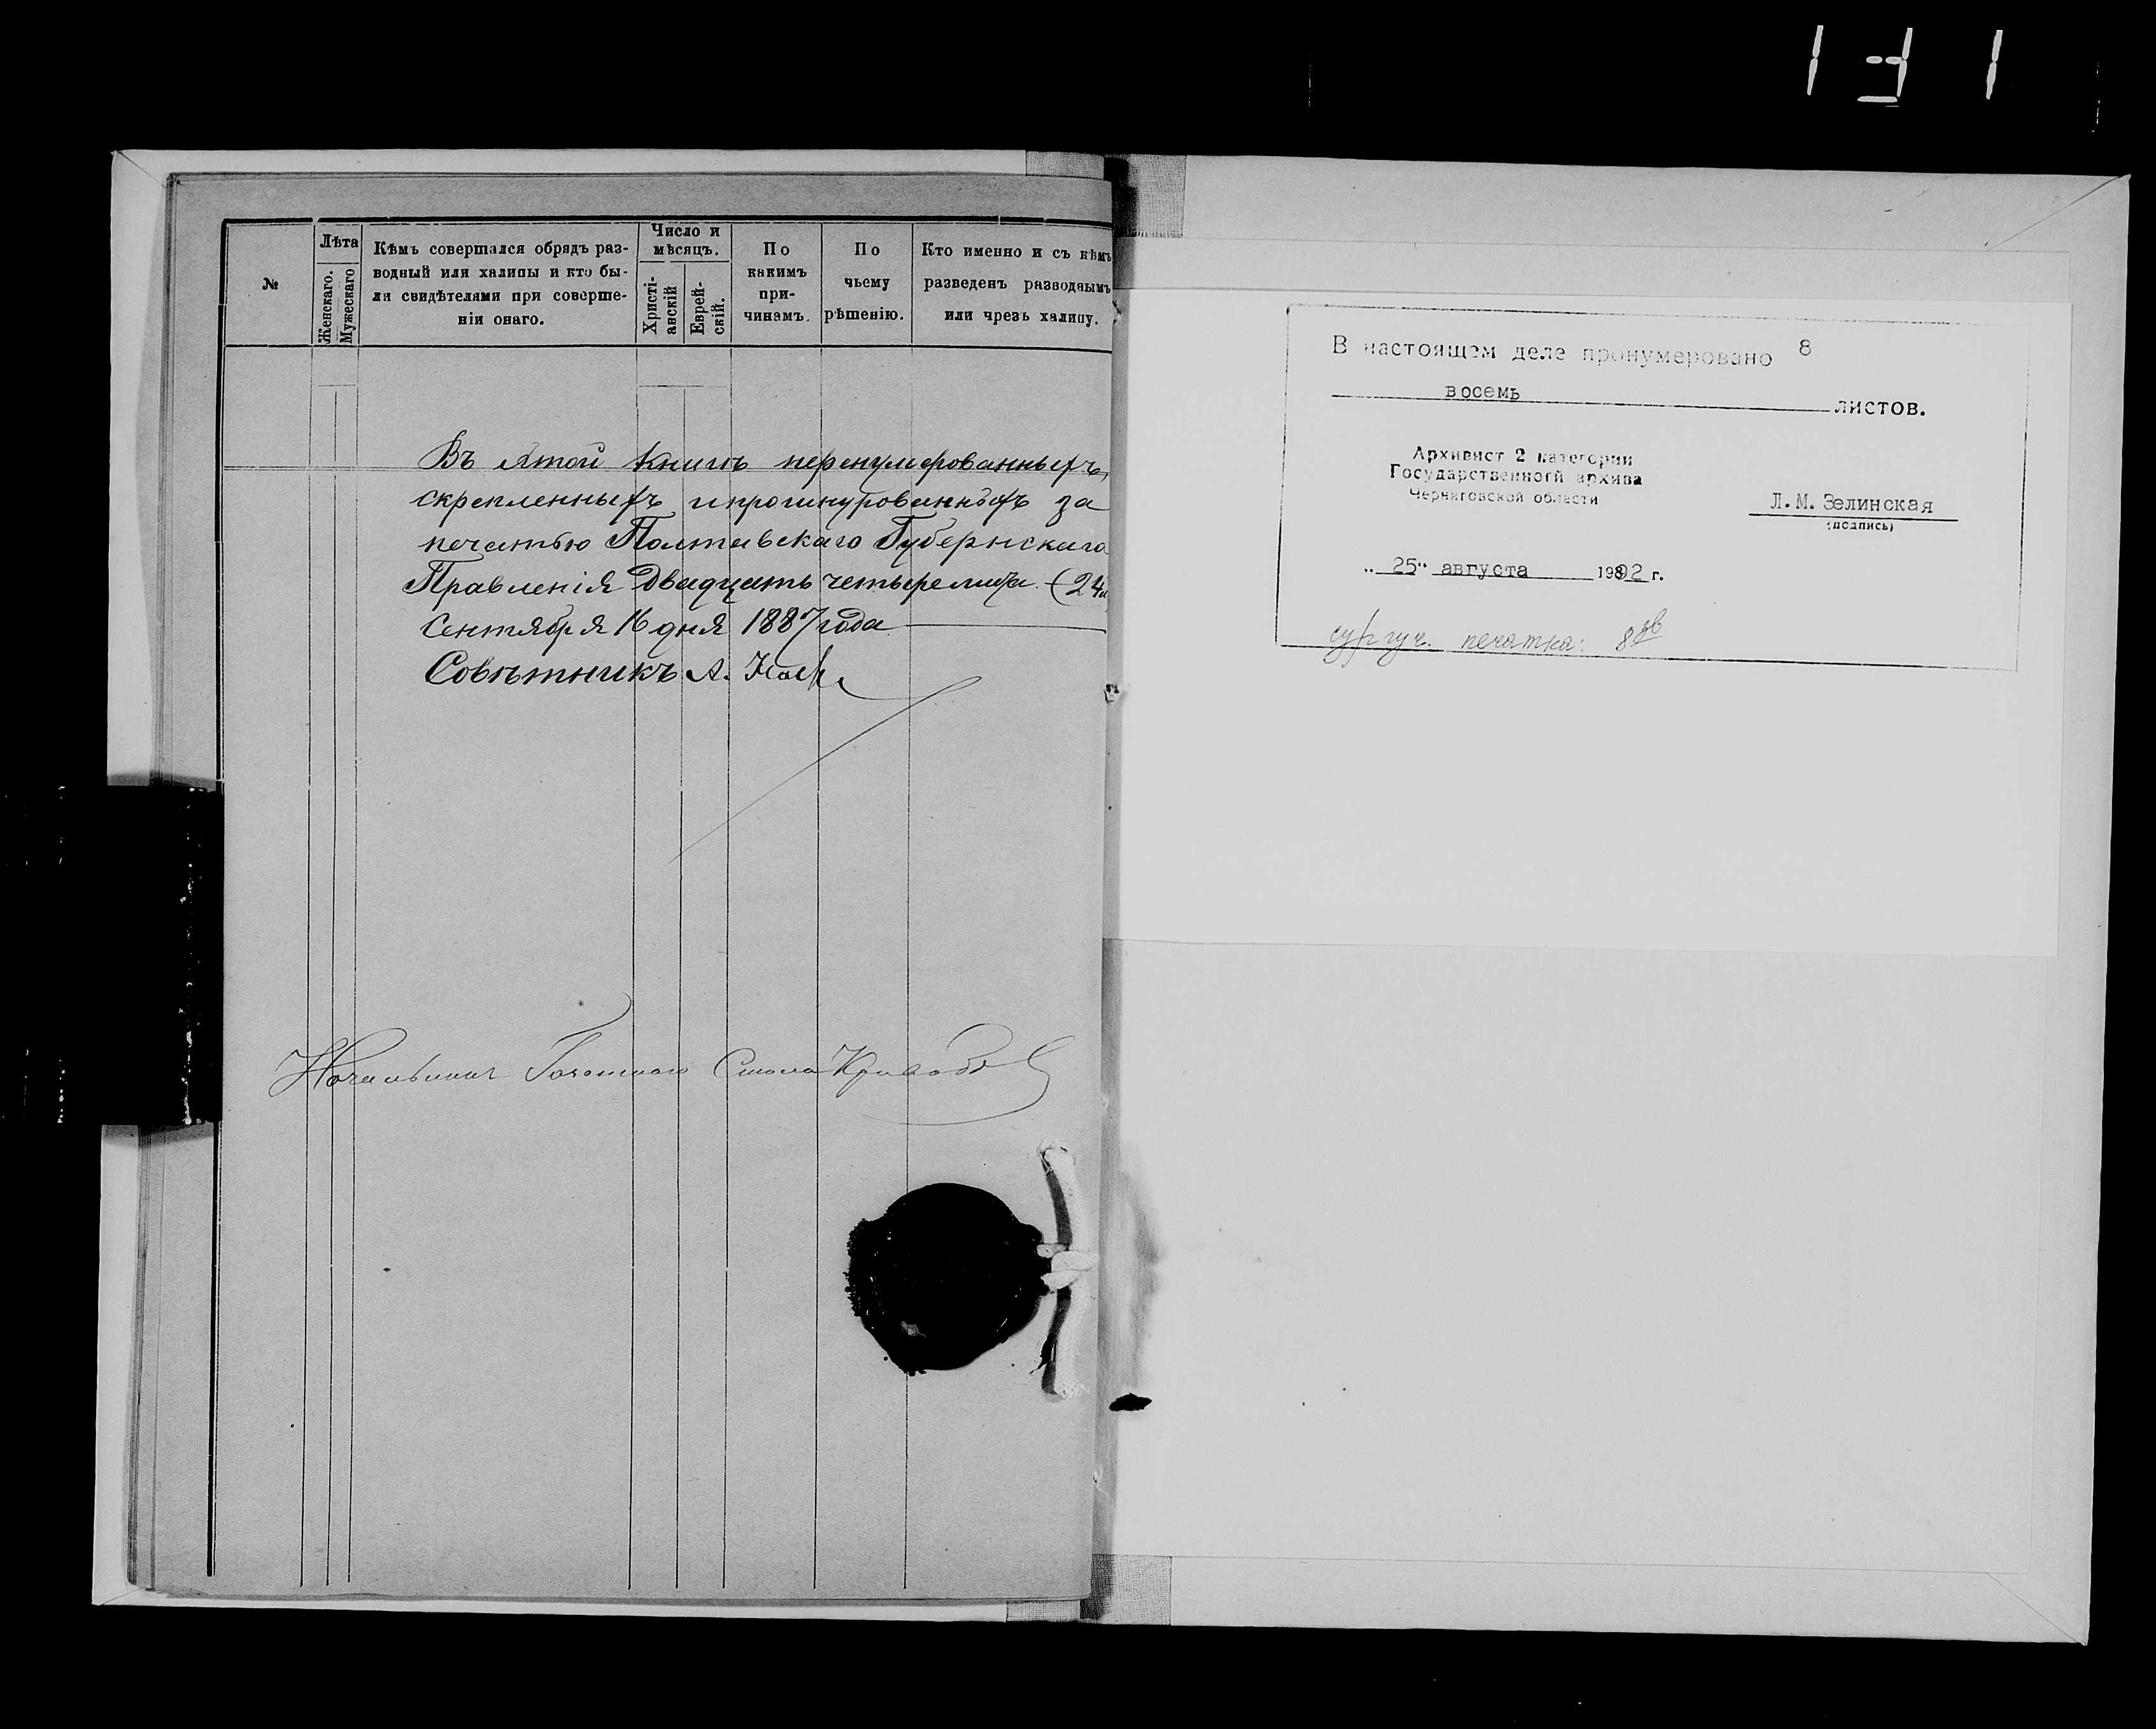 131
№
Лѣта
Женскаго.
Мужескаго
Кѣмъ совершался обрядъ раз-
водный или халицы и кто бы-
ли свидѣтелями при соверше-
ніи онаго.
Число и
мѣсяцъ.
Христі-
анскій
Еврей-
скій.
По
какимъ
при-
чинамъ.
По
чьему
рѣшенію.
Кто именно и съ кѣмъ
разведенъ разводнымъ
или чрезъ халицу.
Въ этой книгѣ перенумерованныхъ,
скрепленныхъ и прошнурованныхъ за
печатью Полтавскаго Губернскаго
Правленія двадцать четыре листа (24
Сентября 16 дня 1887 года
Совѣтникъ А.
Начальникъ Стола
В настоящем деле пронумеровано 8
восемь листов.
Архивист 2 категории
Государственногй архива
Черниговской области
Л.М.Зелинская
(подпись)
„ 25" августа 1992 г.
сургуч. печатка: 8